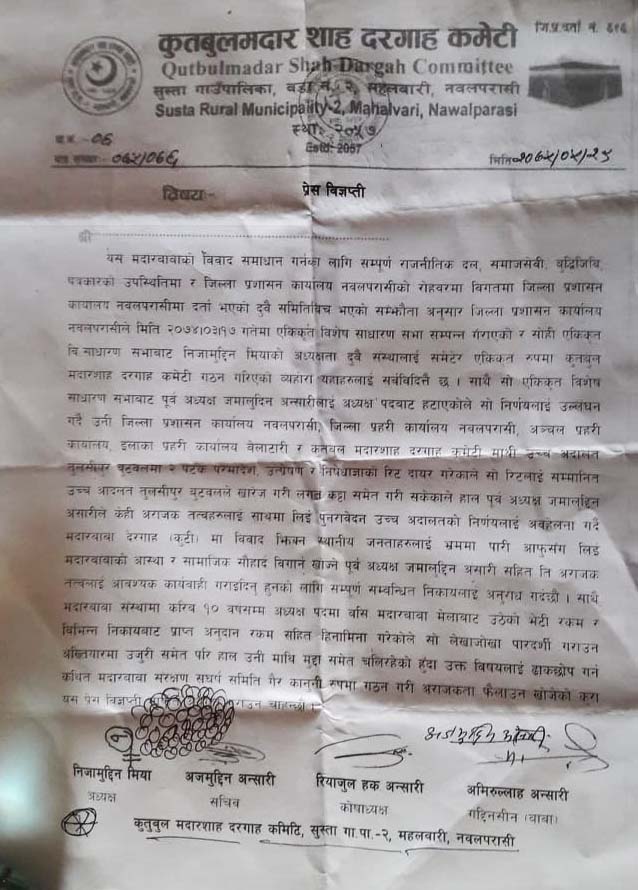 जि.प्र.दर्ता नं. ६१६
कुतबुलमदार शाह दरगाह कमेटी
Qutbulmadar Shah Dargah Committee
सुस्ता गाउँपालिका, वडा नं. २, महलबारी, नवलपरासी
Susta Rural Municipality-2, Mahalvari, Nawalparasi
स्थाः २०५७
Estd: 2057
च.नं. -०६
पत्र संख्याः ०७५/०७६
मिति २०७५/०५/२५
विषयः- प्रेस विज्ञप्ती
श्री
यस मदारबाबाको विवाद समाधान गर्नका लागि सम्पूर्ण राजनीतिक दल, समाजसेवी, बुद्धिजिबि,
पत्रकारको उपस्थितिमा र जिल्ला प्रशासन कार्यालय नवलपरासीको रोहवरमा विगतमा जिल्ला प्रशासन
कार्यालय नवलपरासीमा दर्ता भएको दुवै समितिबिच भएको सम्झौता अनुसार जिल्ला प्रशासन कार्यालय
नवलपरासीले मिति २०७४।०३।१७ गतेमा एकिकृत विशेष साधारण सभा सम्पन्न गराएको र सोही एकिकृत
बि.साधारण सभाबाट निजामुद्दिन मियाको अध्यक्षता दुवै संस्थालाई समेटेर एकिकत रुपमा कुतबुल
मदारशाह दरगाह कमेटी गठन गरिएको व्यहोरा यहाहरुलाई सर्वविदितै छ । साथै सो एकिकृत विशेष
साधारण सभाबाट पूर्व अध्यक्ष जमालुदिन अन्सारीलाई अध्यक्ष पदबाट हटाएकोले सो निर्णयलाई उल्लंघन
गर्दै उनी जिल्ला प्रशासन कार्यालय नवलपरासी, जिल्ला प्रहरी कार्यालय नवलपरासी, अञ्चल प्रहरी
कार्यालय, इलाका प्रहरी कार्यालय बेलाटारी र कुतबुल मदारशाह दरगाह कमेटी माथी उच्च अदालत
तुलसीपुर बुटवलमा २ पटक परमादेश, उत्प्रेषण र निषेधाज्ञाको रिट दायर गरेकोले सो रिटलाई सम्मानित
उच्च आदलत तुलसिपुर बुटवलले खारेज गरी लगत कट्टा समेत गरी सकेकाले हाल पूर्व अध्यक्ष जमालुद्दिन
अंसारीले केही अराजक तत्वहरुलाई साथमा लिई पुनरावेदन उच्च अदालतको निर्णयलाई अवहेलना गर्दै
मदारबाबा दरगाह (कुटी) मा विवाद झिक्न स्थानीय जनताहरुलाई भ्रममा पारी आफुसंग लिई
मदारबाबाको आस्था र सामाजिक सौहाद बिगार्न खोज्ने पूर्व अध्यक्ष जमालुद्दिन अंसारी सहित ति अराजक
तत्वलाई आवश्यक कार्यवाही गराइदिनु हुनको लागि सम्पूर्ण सम्बन्धित निकायलाई अनुराध गर्दछौ । साथै
मदारबाबा संस्थामा करिब १० वर्षसम्म अध्यक्ष पदमा बसि मदारबाबा मेलाबाट उठेको भेटी रकम र
बिभिन्न निकायबाट प्राप्त अनुदान रकम सहित हिनामिना गरेकोले सो लेखाजोखा पारदर्शी गराउन
अख्तियारमा उजुरी समेत परि हाल उनी माथि मुद्दा समेत चलिरहेको हुँदा उक्त विषयलाई ढाकछोप गर्न
कथित मदारबाबा संरक्षण संघर्ष समिति गैर काननी रुपमा गठन गरी अराजकता फैलाउन खोजेको करा
यस प्रेस विज्ञप्ती गराउन चाहन्छौ ।
निजामुद्दिन मिया अजमुद्दिन अन्सारी रियाजुल हक अन्सारी अमिरुल्लाह अन्सारी
अध्यक्ष सचिव कोषाध्यक्ष गद्दिनसीन (बाबा)
कुतुबुल मदारशाह दरगाह कमिटि, सुस्ता गा.पा.-२, महलवारी, नवलपरासी